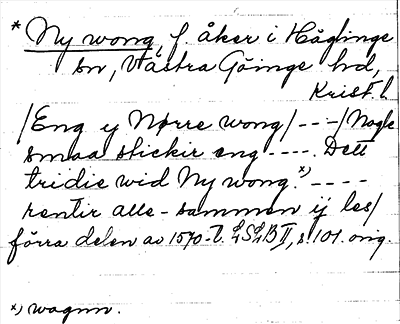 * Ny wong, f. åker i Häglinge
sn, Västra Göinge hd,
Krist. l.
/Eng y Nørre wong/ ---/Nogle
smaa stickir eng ----. Dett
tridie wid Ny wong.x) ----
rentir alle-sammen ij les/
förra delen av 1570-t. LSLB II, s. 101. orig.
x) wagnn.